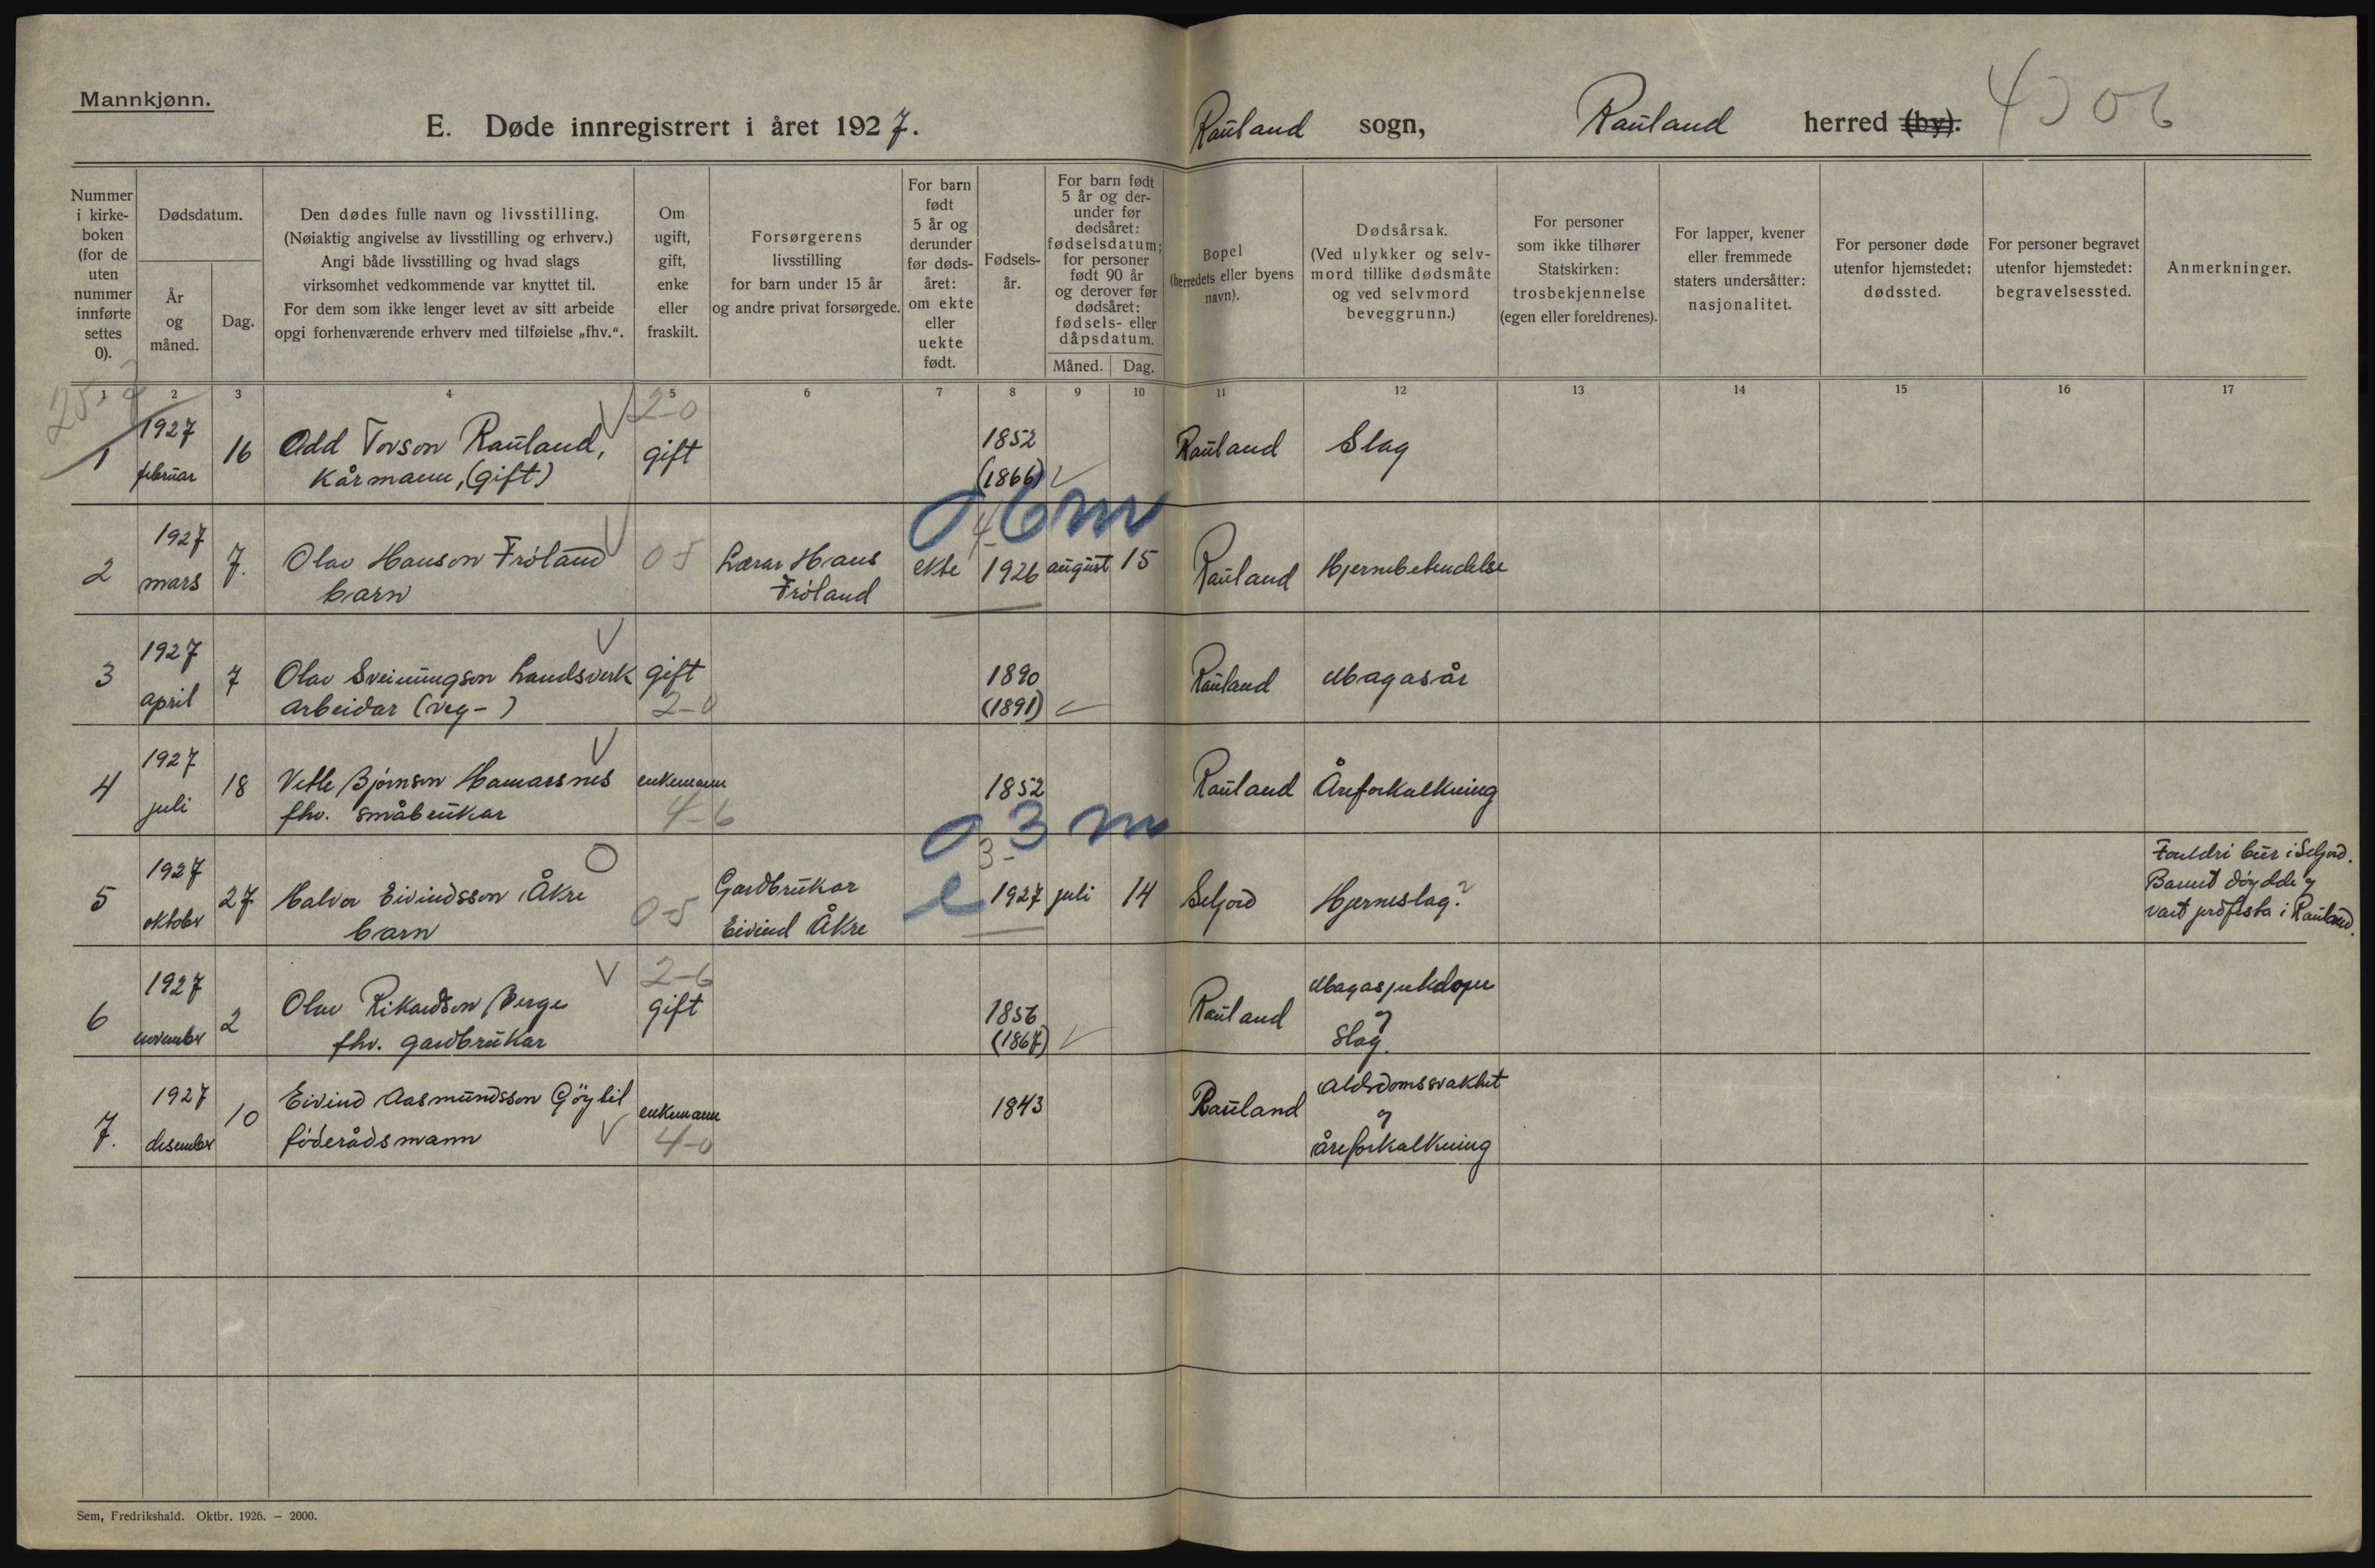 Mannkjønn.
E. Døde innregistrert i året 1927.
Rauland sogn,
Rauland herred (by).
Nummer i kirke-boken (for de uten nummer innførte settes 0).
Dødsdatum.
År og måned.
Dag.
Den dødes fulle navn og livsstilling.
(Nøiaktig angivelse av livsstilling og erhverv.)
Angi både livsstilling og hvad slags
virksomhet vedkommende var knyttet til.
For dem som ikke lenger levet av sitt arbeide
opgi forhenværende erhverv med tilføielse „fhv.“.
Om ugift, gift, enke eller fraskilt.
Forsørgerens
livsstilling
for barn under 15 år
og andre privat forsørgede.
For barn født 5 år og derunder før døds-året: om ekte eller uekte født.
Fødsels-år.
For barn født 5 år og der-under før dødsåret: fødselsdatum; for personer født 90 år og derover før dødsåret: fødsels- eller dåpsdatum.
Måned. Dag.
Bopel
(herredets eller byens navn).
Dødsårsak.
(Ved ulykker og selv-mord tillike dødsmåte og ved selvmord beveggrunn.)
For personer som ikke tilhører Statskirken: trosbekjennelse (egen eller foreldrenes).
For lapper, kvener eller fremmede staters undersåtter: nasjonalitet.
For personer døde utenfor hjemstedet: dødssted.
For personer begravet utenfor hjemstedet: begravelsessted.
Anmerkninger.
1 2 3 4 5 6 7 8 9 10 11 12 13 14 15 16 17
2-0
1 1927 februar 16 Odd Torson Rauland, gift 1852 Rauland Slag
Kårmann, (gift) (1866)
0 6 m
4
2 1927 mars 7. Olav Hanson Fróland 0-5 Lærar Hans ekte 1926 august 15 Rauland Hjernebetendelse
barn Fróland
3 1927 april 7 Olav Sveinungson Landsverk gift 1890 Rauland Magasår
arbeidar (veg-) 2-0 (1891)
4 1927 juli 18 Vetle Bjørnson Hamarsnes enkemann 1852 Rauland Åreforkalkning
fhv. småbrukar 4-6
0 3 m
3-
5 1927 oktober 27 Halvor Eivindsson Åkre 0-5 Gardbrukar e 1927 juli 14 Seljord Hjerneslag?
barn Eivind Åkre
Foreldri bur i Seljord.
Barnet døydde og
vart jordfesta i Rauland.
2-6
6 1927 november 2 Olav Rikardson Berge gift 1856 Rauland Magasjukdom
fhv. gardbrukar (1867) og
Slag.
7. 1927 desember 10 Eivind Aasmundsson Göytil enkemann 1843 Rauland Alderdomssvakhet
föderådsmann 4-0 og
åreforkalkning
Sem, Fredrikshald. Oktbr. 1926. – 2000.